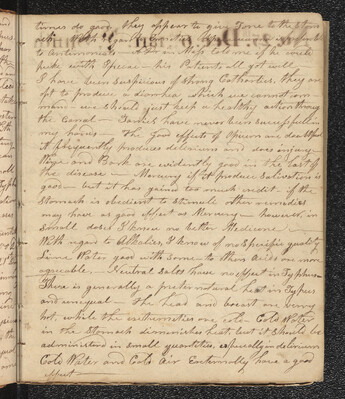 times do good they appear to give Tone to the Stom
to Antimonials
I have been suspicious of strong Cathartics, they are
apt to produce a diarrhea which we cannot com
mand. we should just keep a healthy action through
the Canal — Tonics have never been successful in
my hands — the good effects of Opium are doubtful
it frequently produces delirium and does injury
Wine and Bark are evidently good in the last of
the disease — Mercury if it produce Salivation is
good — but it has gained too much credit. if the
Stomach is obedient to stimuli other remedies
may have as good effect as Mercury — however, in
small doses I know no better Medicine
With regard to Alkalies, I know of no specific quality
Lime Water good with some to others Acids are more
agreeable. Neutral Salts have no effect in Typhus —
There is generally a preternatural heat in Typhus
and unequal — The head and breast are very
hot, while the extremities are cold. Cold Water
in the Stomach diminishes heat, but it should be
administered in small quantities, especially in delirium
Cold Water and Cold Air Externally have a good
effect —